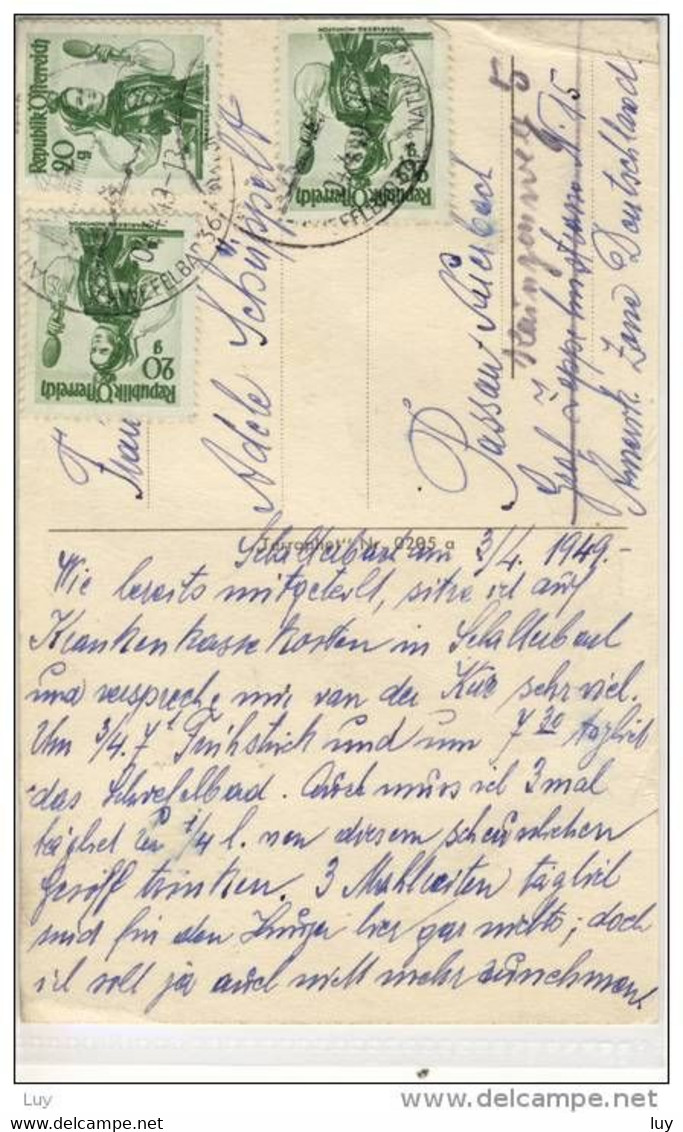 Republik Österreich
20 g
Republik Österreich
20 g
Republik Österreich
20 g
Frau
Adele Schüppelt
Passau-Auerbach
Haingerweg 5
Nr. 15
Amerik Zone Deutschland.
"Terraphot" Nr. 9295 a
Schallerbad am 3/4. 1949.-
Wie bereits mitgeteilt, sitze ich auf
Krankenkassekosten in Schallerbad
und verspreche mir von der Kur sehr viel.
Um 3/4 7 Frühstück und um 7 30 täglich
das Schwefelbad. Auch muss ich 3 mal
täglich 1/4 l. von diesem scheusslichen
Gesöff trinken. 3 Mahlzeiten täglich
sind für den Hunger hier gar nichts, doch
ich soll ja auch nicht mehr zunehmen.
Luy
© www.delcampe.net
luy